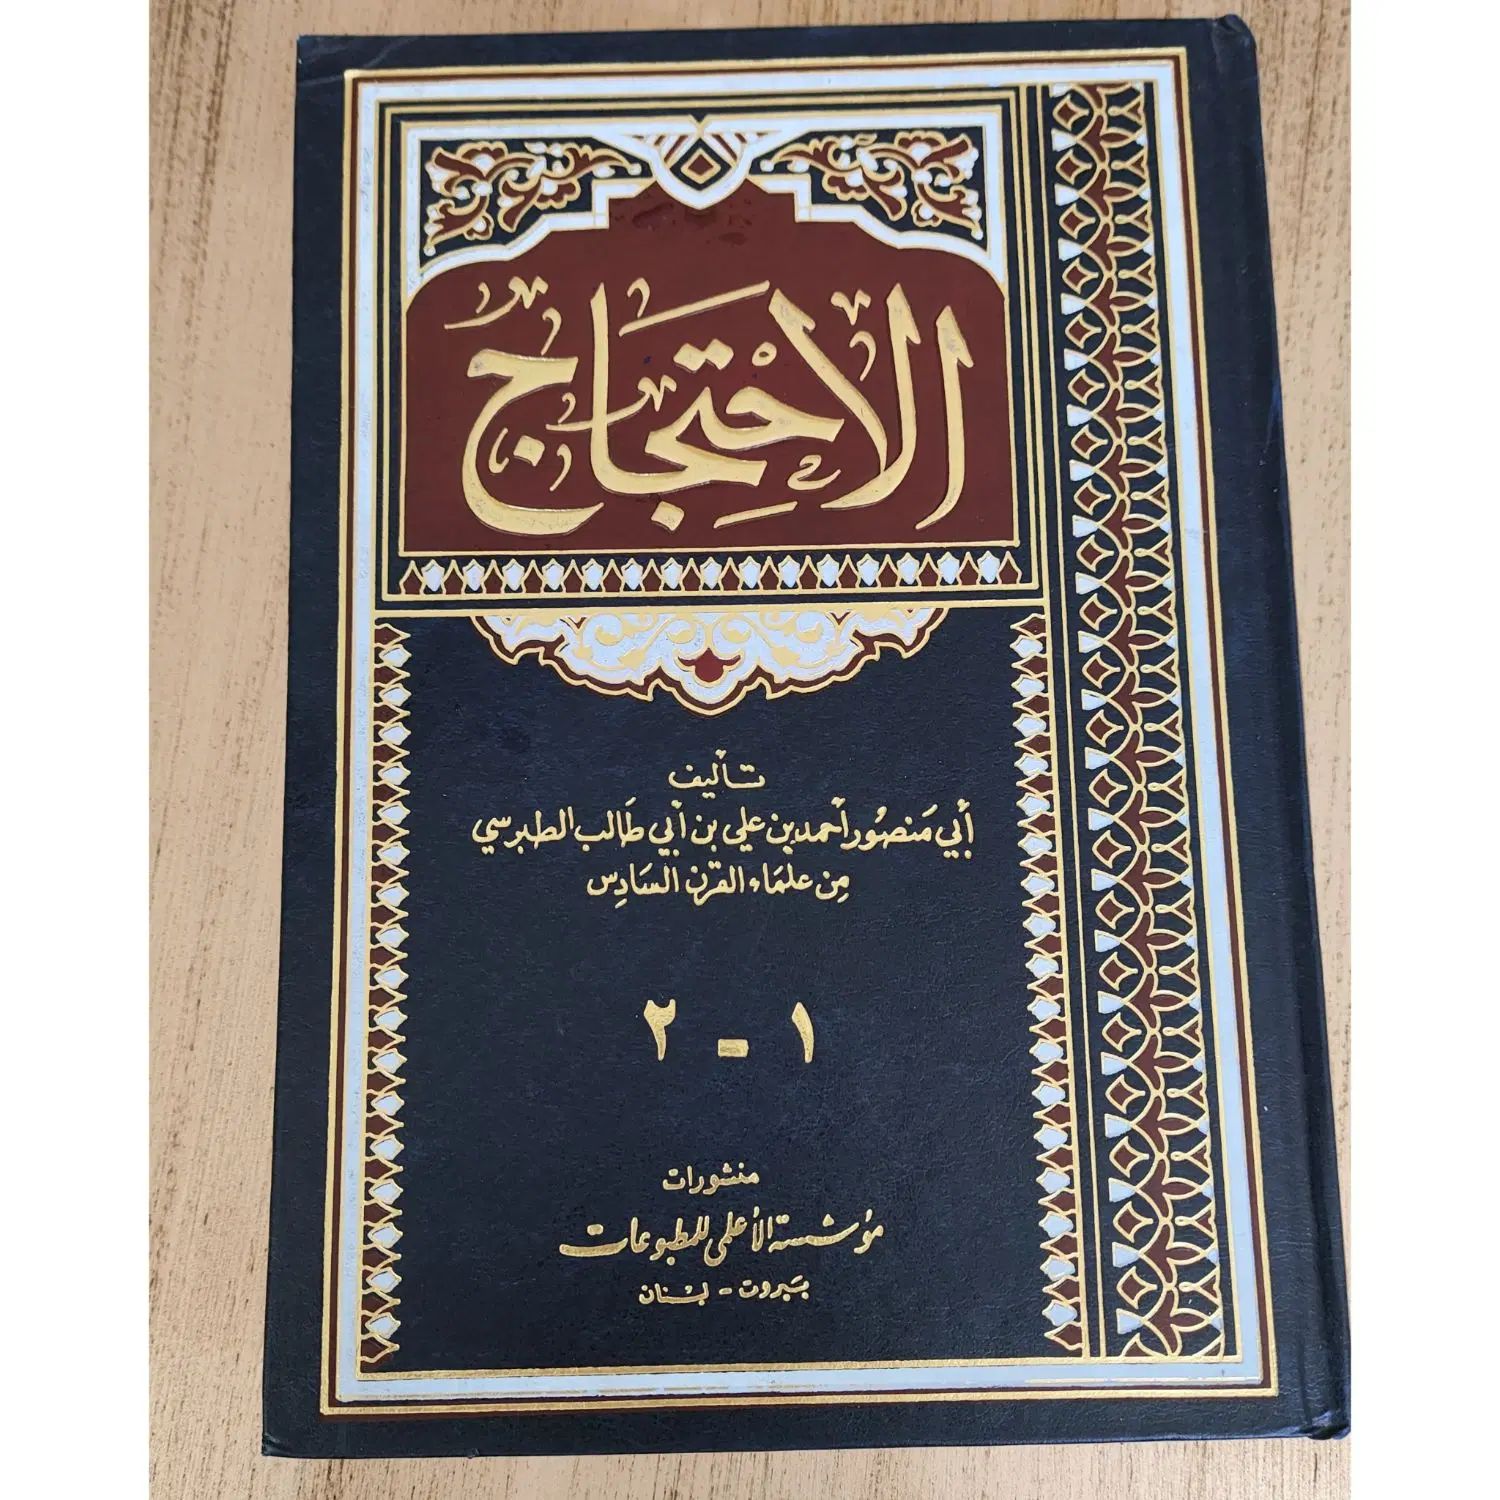 الاحتجاج
تأليف
أبي منصور أحمد بن علي بن أبي طالب الطبرسي
من علماء القرن السادس
١ - ٢
منشورات
مؤسسة الأعلمي للمطبوعات
بيروت - لبنان